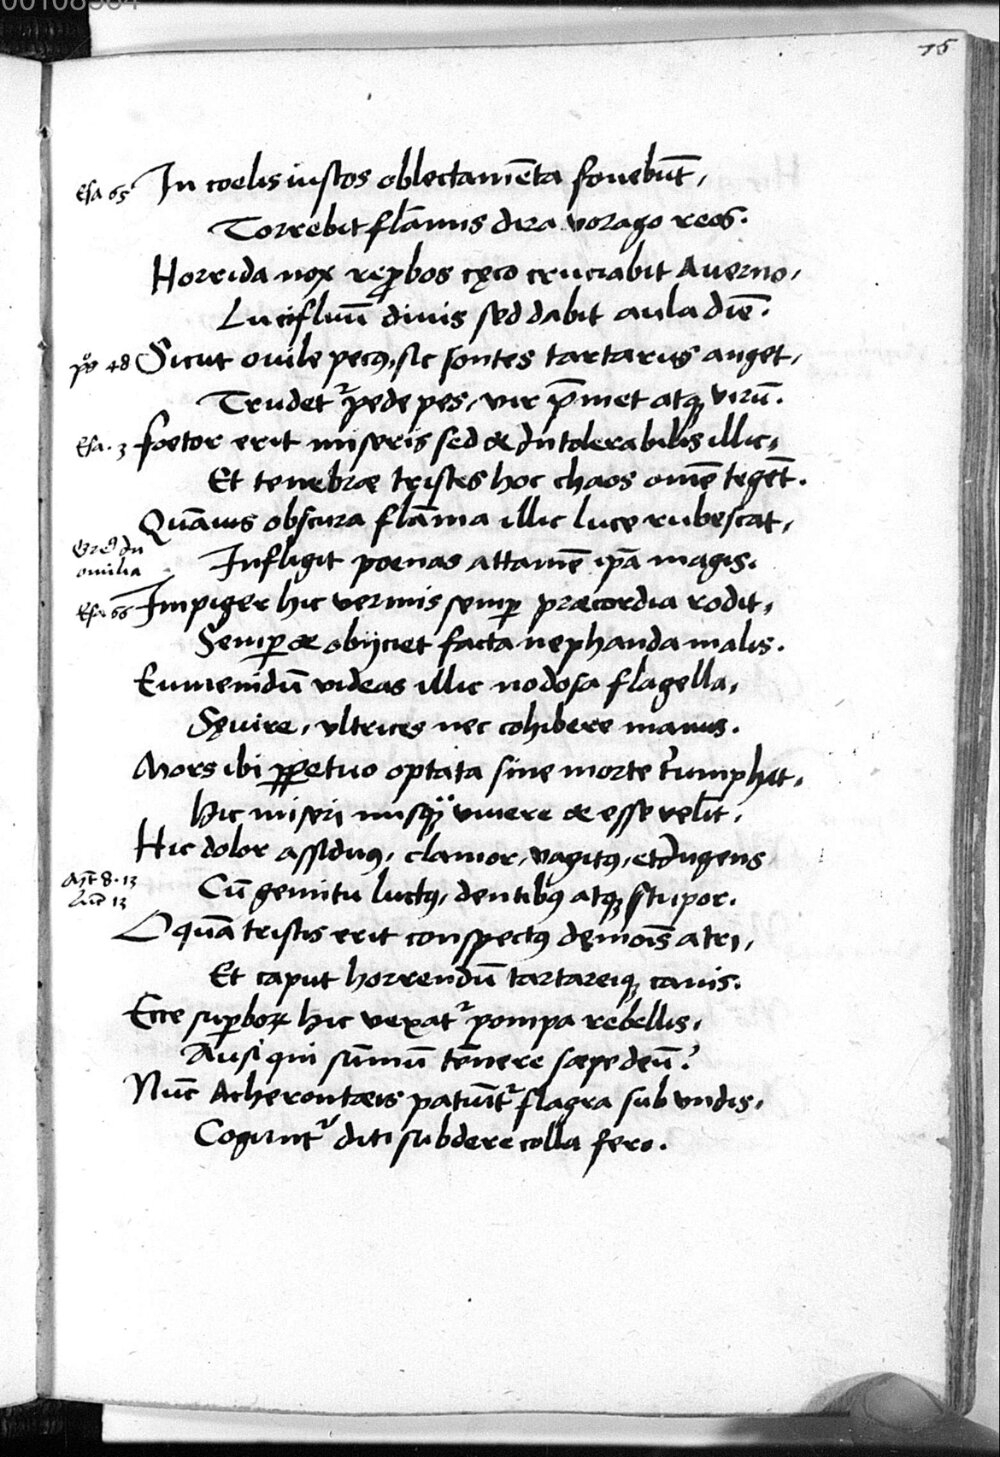 00108584
75
Esa 65 In coelis iustos oblectamēta fouebūt,
Torrebit flāmis dira vorago reos.
Horrida nox reꝓbos cęco cruciabit Auerno,
Lucifluū diuis sed dabit aula diē.
ps 48 Sicut ouile pecꝰ, sic sontes tartarus anget,
Trudetʳ pede pes, vir p̄met atqꝫ virū.
Esa. 3 foetor erit miseris sed & Intolerabilis illic,
Et tenebræ tristes hoc chaos omē tegēt.
Quāuis obscura flāma illic lucę rubescat,
Greg In
omilia
Infligit poenas attamē ipā magis.
Esa 66 Impiger hic vermis semꝑ præcordia rodit,
Semꝑ & obijciet facta nephanda malis.
Eumenidū videas illic nodosa flagella,
Sęuire, vltrices nec cohibere manus.
Mors ibi ꝑpetuo optata sine morte t'umphat,
Hic miseri nusqꝫ viuere & esse velīt,
Hic dolor assiduꝰ, clamor, vagitꝰ, et Ingens
Mt 8. 13
Luc 13
Cū gemitu luctꝰ, dentibꝰ atqꝫ stupor.
O quā tristis erit conspectꝰ dęmoīs atri,
Et caput horrendū tartareiqꝫ canis.
Ecce suꝑboꝝ hic vexatʳ pompa rebellis,
Ausi qui sūmū tēnere sæpe deū?
Nūc Acherontæis patiūtʳ flagra sub vndis,
Cogūntʳ diti subdere colla fero.